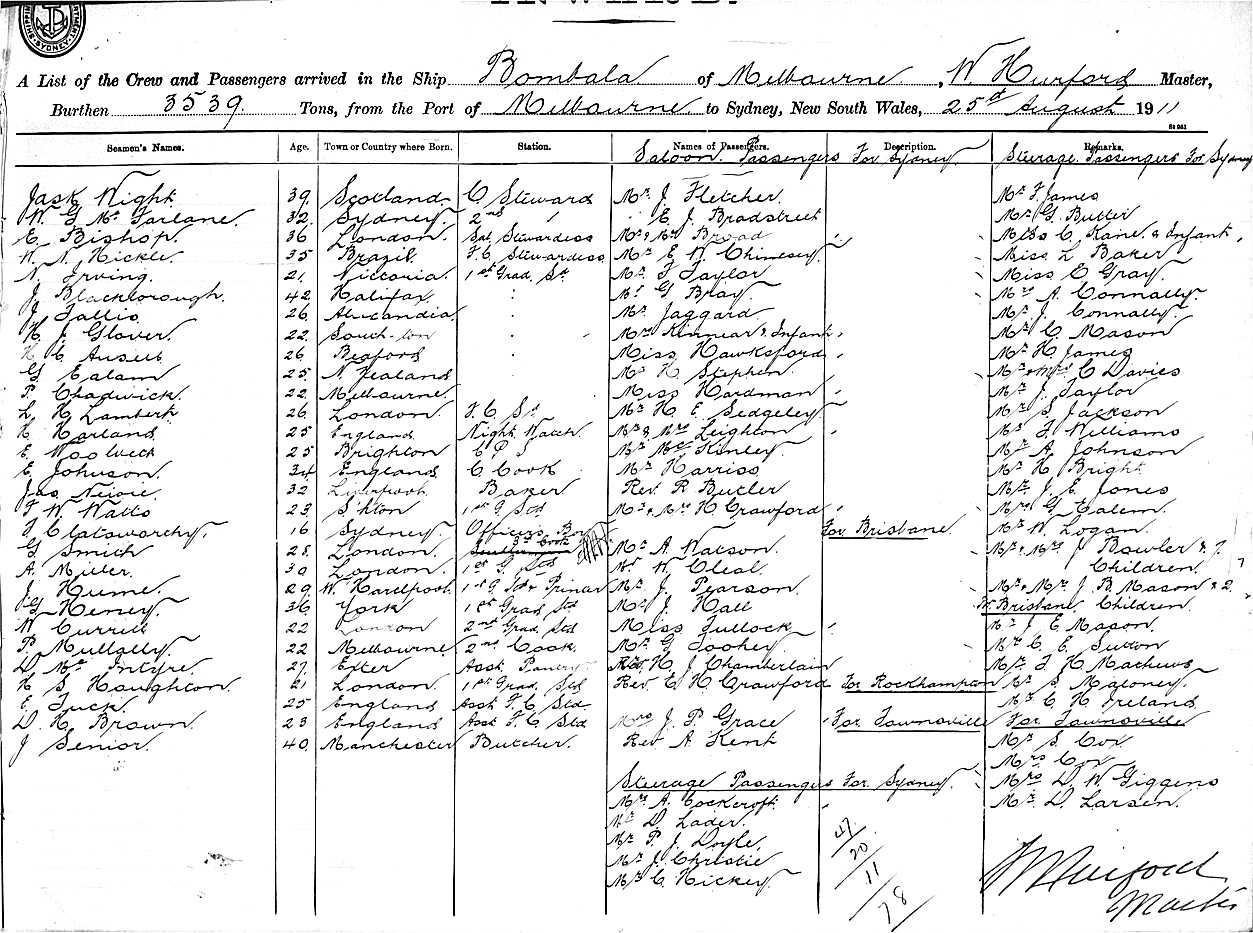 SYDNEY
A List of the Crew and Passengers arrived in the Ship Bombala of Melbourne, W. Hurford Master,
Burthen 3539. Tons, from the Port of Melbourne to Sydney, New South Wales, 25th August 1911
Seamen's Names. Age. Town or Country where Born. Station. Names of Passengers. Description. Remarks.
Saloon Passengers For Sydney. Steerage Passengers For Sydney
Night 39 Scotland C Steward Mr J. Fletcher. Mr F. James
W. G. Mc Farlane 32 Sydney 2nd " E. J. Bradstreet Mr G. Butler
E. Bishop. 36 London. Sal. Stewardess Mr & Mrs Broad Miss C. Kane & Infant
W. N. Hickle. 35 Brazil F. C Stewardess Mr E W Miss L Baker
N. Irving. 21 Victoria 1st Grad. St. Mr F Taylor Miss C Gray.
J Blackborough. 42 Halifax. Mr G Bray. Mrs A. Connally.
J. Tallis. 26 Mr Jaggard. Mr J. Connally.
H. J. Glover. 22 South-ton Mrs Kinnear & Infant Mr C. Mason
H. C 26 Bedford Miss Hawksford Mr H James
G Ealam 25 N Zealand Mr H Stephen. Mr & Mrs C Davies
P. Chadwick. 22 Melbourne. Miss Hardman Mr J. Taylor
L. H Lambert. 26 London. F. C St. Mr H. E. Sedgeley Mr S. Jackson
H Harland 25 England Night Watch Mr & Mrs Leighton Mr F Williams
E Woolven 25 Brighton Mr McKinley Mr A. Johnson
E Johnson. 34 England C Cook Mr Harriss Mr H. Bright
Jas 32 Liverpool Baker Rev. R Butler Mr J. E. Jones
F W. Watts 23 1st G Std Mr & Mrs H Crawford Mrs G
F Clatsworthy. 16 Sydney. Officers Boy For Brisbane Mr W. Logan.
G Smith 28 London. 3rd Cook Mr A. Watson. Mr & Mrs J Bowler & 7
A. Miller. 30 London. 1st G. Std Mr W. Cleal. Children.
J. Hume. 29 W. Hartlepool Mr J. Pearson Mr & Mrs J. B. Mason & 2
G Heney. 36 York 1st Grad. Std Mr J. Hall For Brisbane Children.
W Currell 22 London 2nd Grad. Std Miss Tullock Mr J. E. Mason.
P Mullally. 22 Melbourne 2nd Cook. Mr G Toohey Mr C. E. Sutton
D. Mc Intyre. 27 Exter Asst. Pantry Rev. H. J. Chamberlain Mr F. H Mathews
H G Houghton. 21 London. 1st Grad. Std Rev. C H Crawford For Rockhampton Mr S. Maloney.
E. Tuck. 25 England Asst F. C Std Mr C. H. Ireland
D. H. Brown. 23 England Asst F. C Std Mrs J. P Grace For Townsville For Townsville
J Senior. 40 Manchester Butcher. Rev A Kent Mr S. Cox
Mrs Cox
Steerage Passengers For Sydney. Mrs D. W. Giggens
Mrs A. Cockcroft Mr D. Larsen.
Mr D. Lader.
Mr P. J. Doyle. 47
Mr J. Christie 20
Mr C. Hickey. 11
78
W Hurford
Master